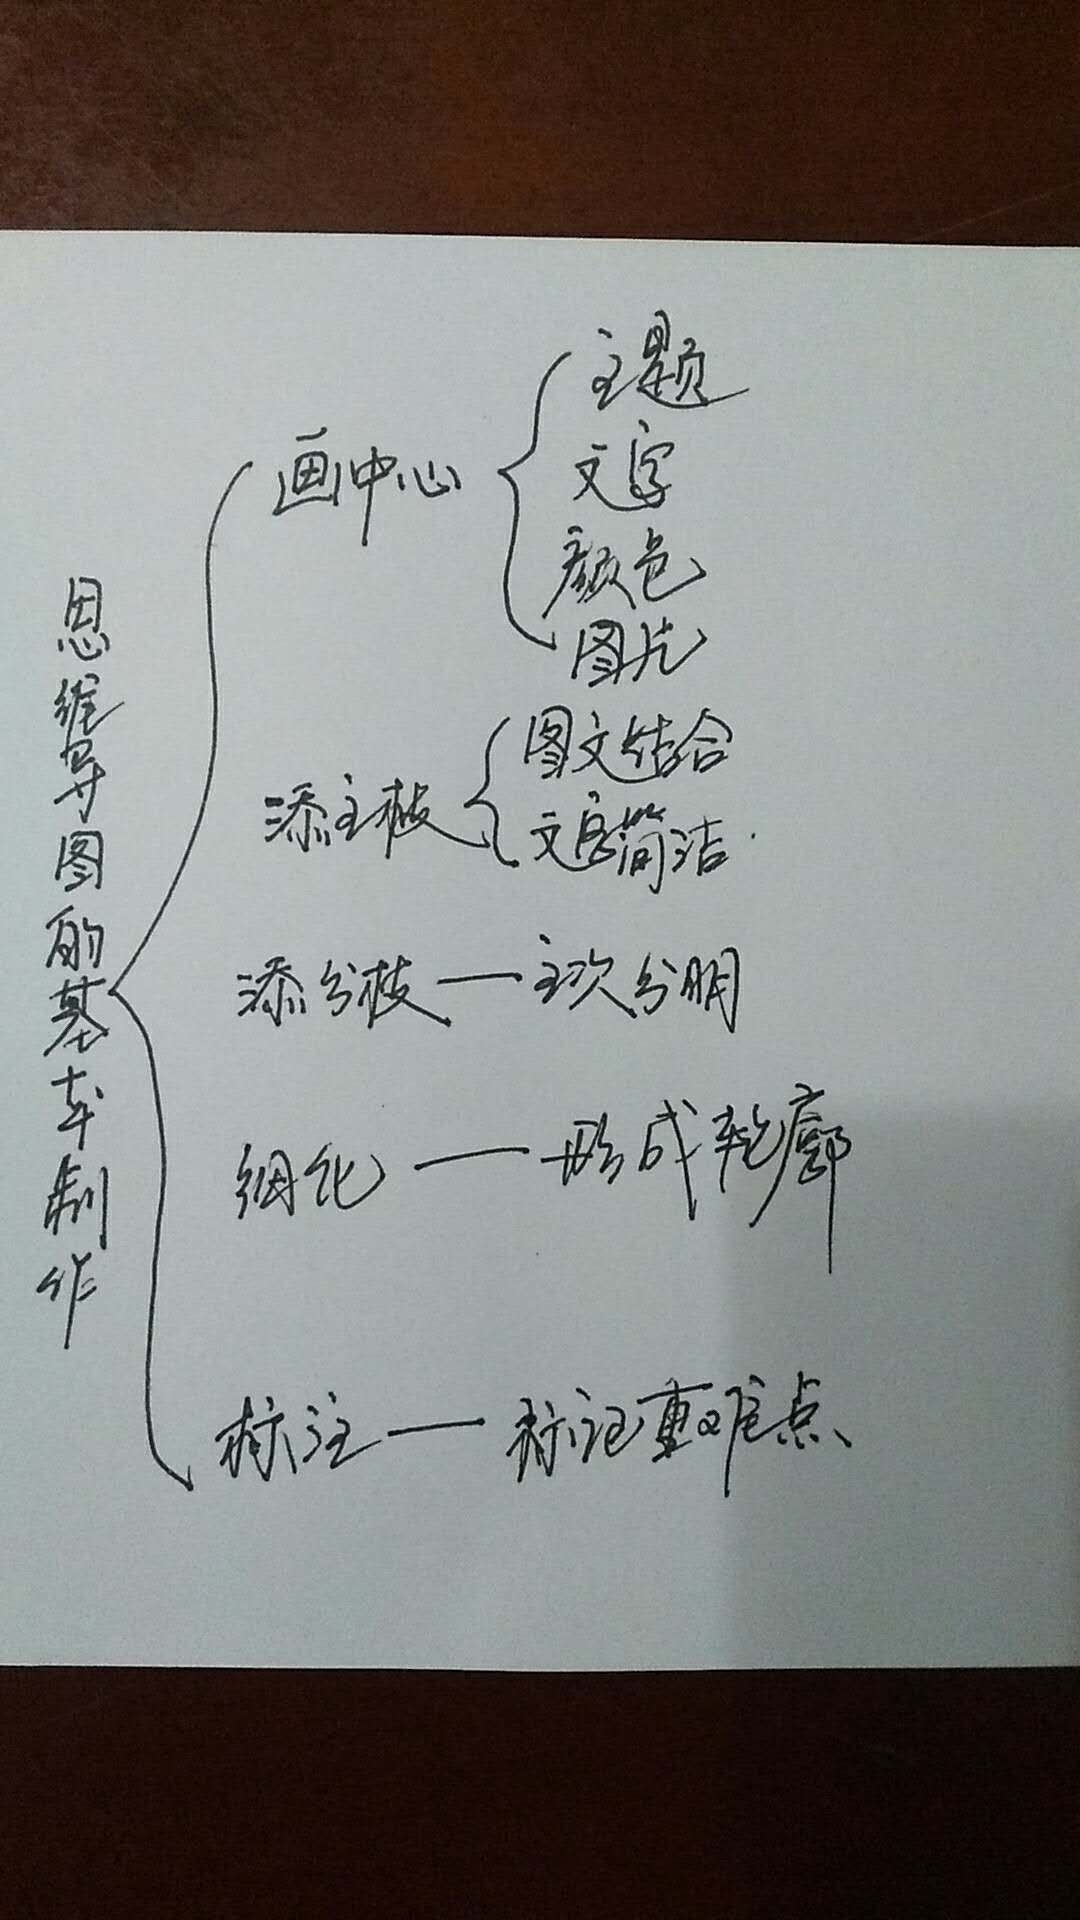 思维导图的基本制作
画中心
主题
文字
颜色
图片
添主枝
图文结合
文字简洁
添分枝 — 主次分明
细化 — 形成轮廓
标注 — 标记重难点